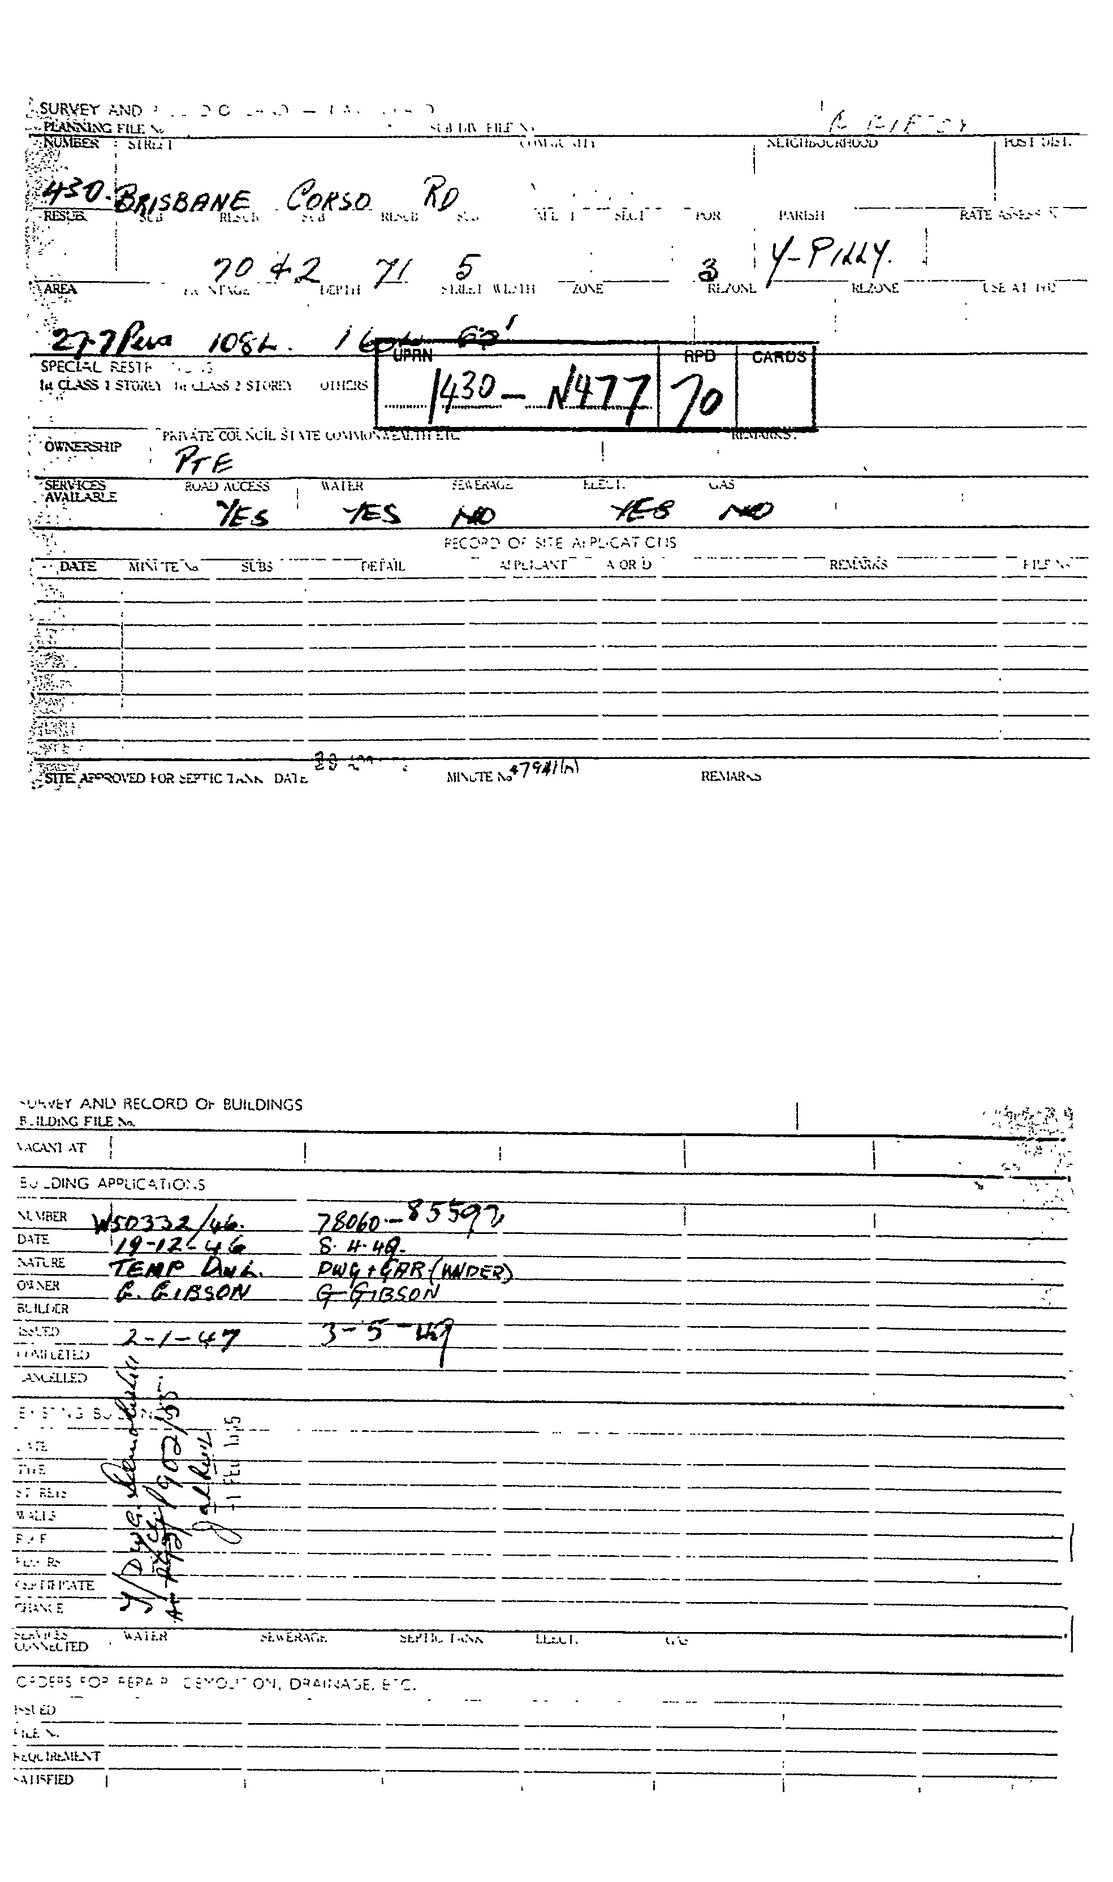 SURVEY AND
PLANNING FILE No SUBDIV. FILE No
NUMBER STREET COMMUNITY NEIGHBOURHOOD POST DIST.
430. BRISBANE CORSO RD
RESUB. SUB RESUB SUB RESUB SUB SECT POR PARISH RATE ASSESS N
70 & 2 71 5 3 Y-PILLY.
AREA FRONTAGE DEPTH STREET WIDTH ZONE REZONE REZONE USE AT
27.7 Pers 108L. 66'
SPECIAL RESTR
1st CLASS 1 STOREY 1st CLASS 2 STOREY OTHERS
UPRN RPD CARDS
1430 - N477 70
PRIVATE COUNCIL STATE COMMONWEALTH ETC. REMARKS.
OWNERSHIP
PTE
SERVICES AVAILABLE ROAD ACCESS WATER SEWERAGE ELECT. GAS
YES YES NO YES NO
RECORD OF SITE APPLICATIONS
DATE MINUTE No SUBS DETAIL APPLICANT A OR D REMARKS FILE No
SITE APPROVED FOR SEPTIC TANK DATE MINUTE No REMARKS
SURVEY AND RECORD OF BUILDINGS
BUILDING FILE No.
VACANT AT
BUILDING APPLICATIONS
NUMBER W50332/46. 78060-85592
DATE 19-12-46 8.4.49.
NATURE TEMP DWL. DWG + GAR (UNDER)
OWNER G. GIBSON G GIBSON
BUILDER
ISSUED 2-1-47 3-5-49
COMPLETED
CANCELLED
EXISTING BUILDINGS
DATE
TYPE
STOREYS
WALLS
ROOF
FLOORS
CERTIFICATE
CHANGE
SERVICES CONNECTED WATER SEWERAGE SEPTIC TANK ELECT. GAS
ORDERS FOR REPAIR, DEMOLITION, DRAINAGE, ETC.
ISSUED
FILE No.
REQUIREMENT
SATISFIED